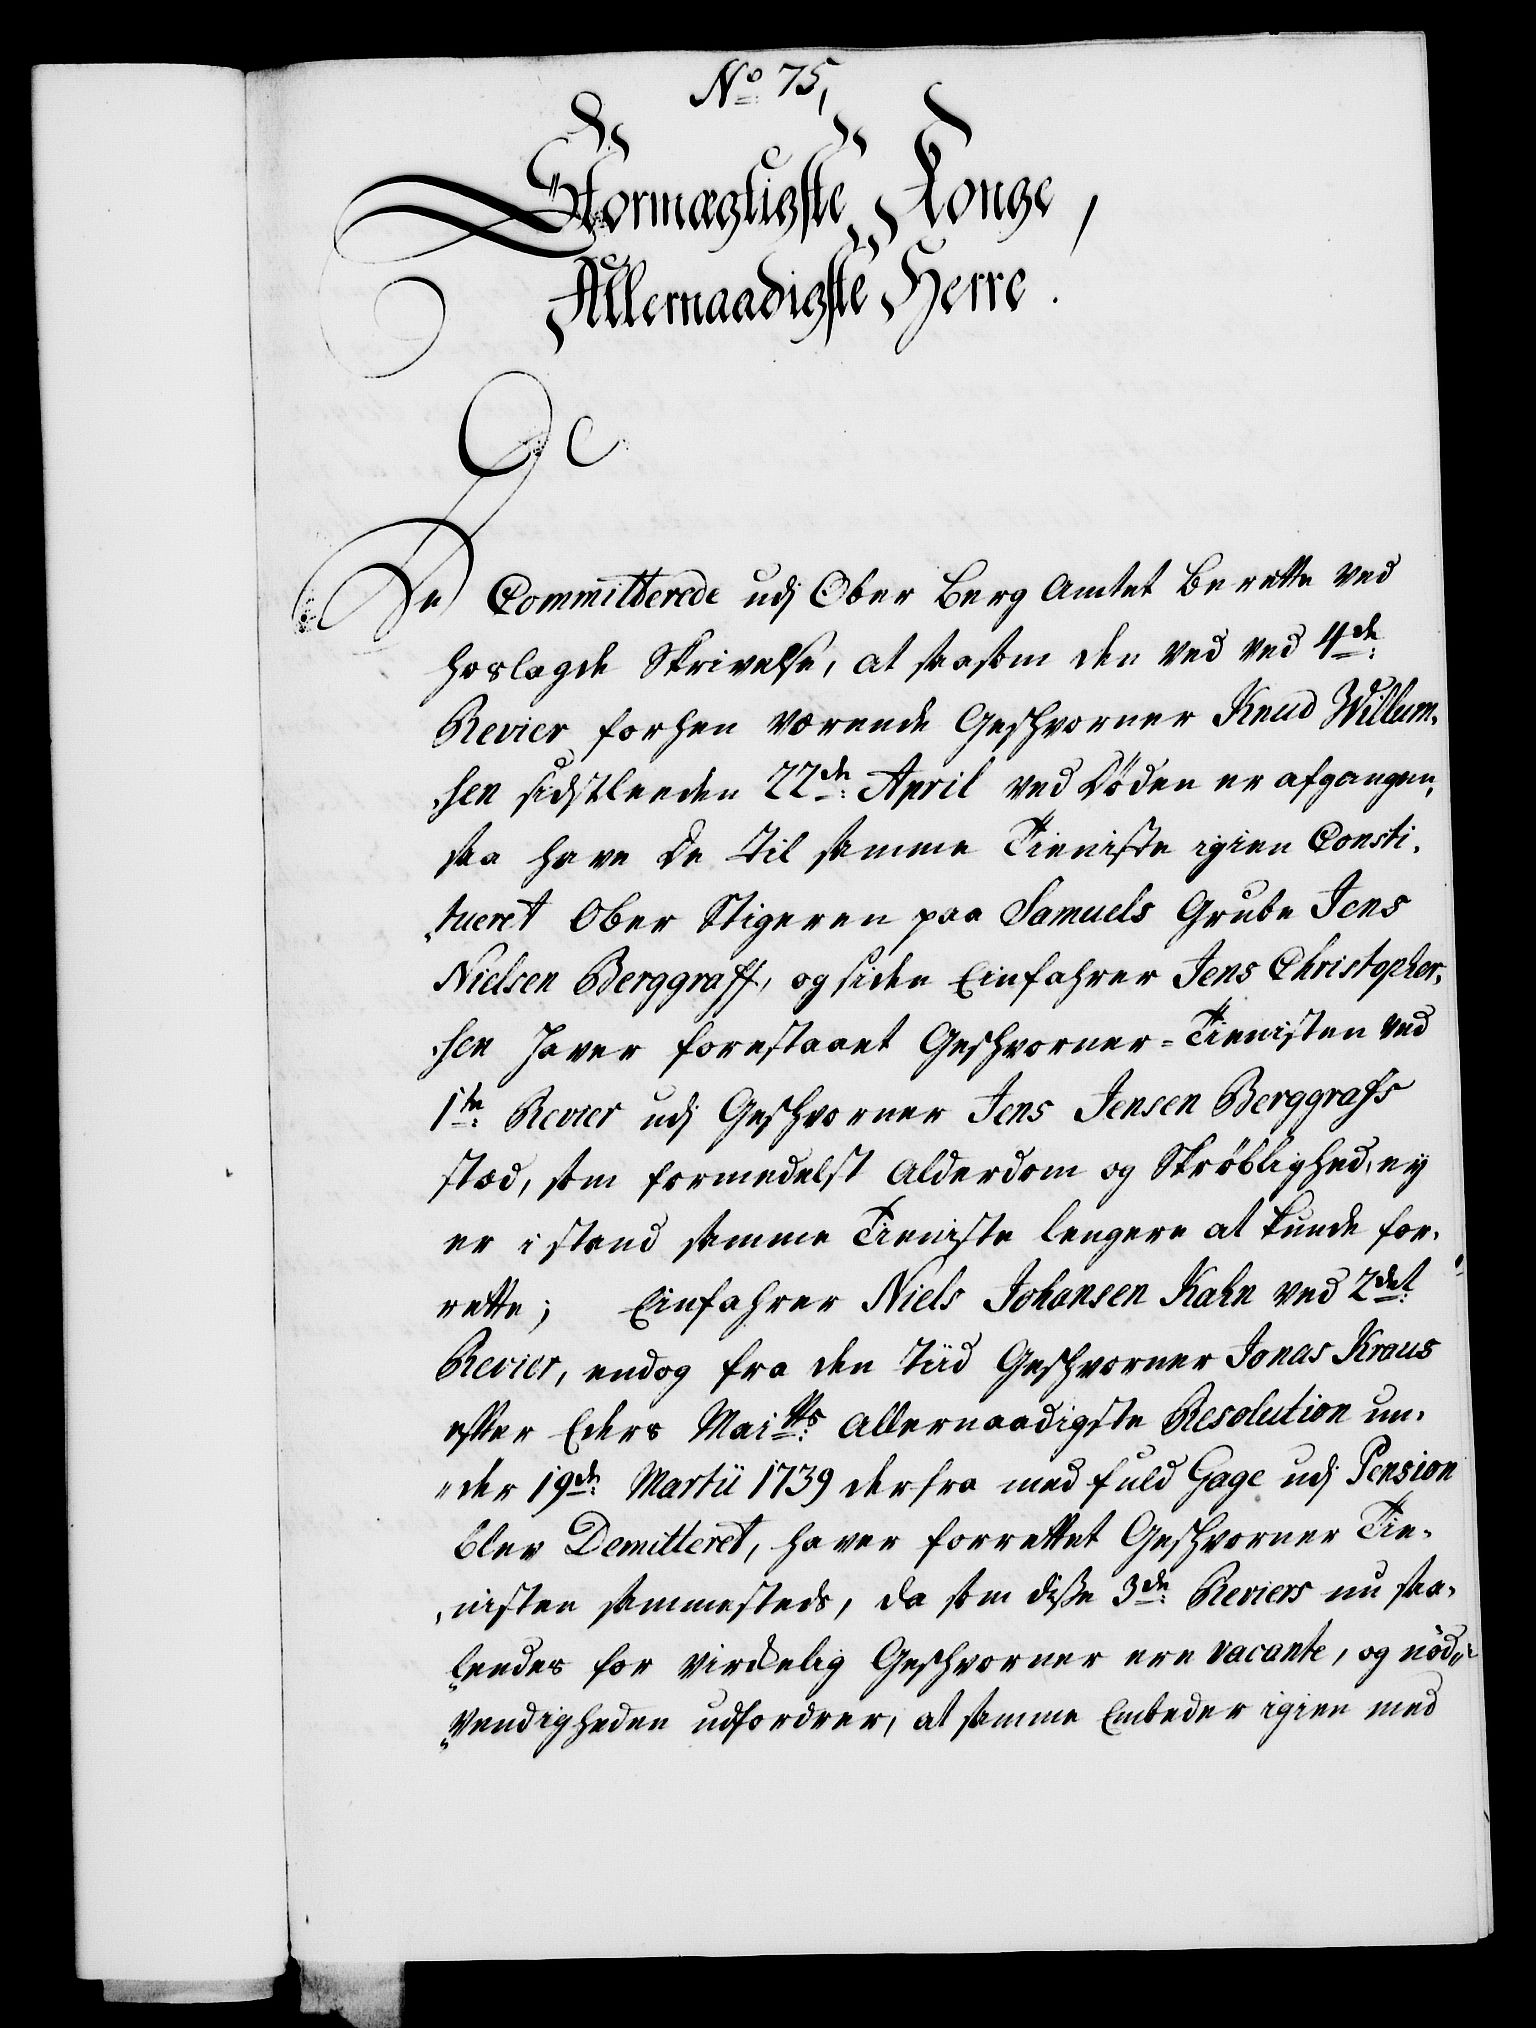 No 75,
Stormægtigste Konge,
Allernaadigste Herre.
De Committerede udj Ober Berg Amtet berette ved
hoslagde Skrivelse, at saasom den ved ved 4de
Revier forhen værende Geschvorner Knud Willum-
-sen sidstleeden 22de April ved Döden er afgangen,
saa have de til samme Tieniste igien Consti-
-tueret Ober Stigeren paa Samuels Grube Jens
Nielsen Berggraff, og siden Einfahrer Jens Christopher-
-sen haver forestaaet Geschvorner-Tienisten ved
1te Revier udj Geschvorner Jens Jensen Berggrafs
stæd, som formedelst Alderdom og Skröblighed, ey
er i stand samme Tieniste lengere at kunde for-
rette; Einfahrer Niels Johansen Kahn ved 2det
Revier, endog fra den tiid Geschvorner Jonas Kraus
efter Eders Maitts Allernaadigste Resolution un-
-der 19de Martii 1739 derfra med fuld Gage udj Pension
blev Demitteret, haver forrettet Geschvorner Tie-
-nisten sammesteds, da som disse 3de Reviers nu saa-
-leedes for virckelig Geschvorner ere vacante, og nöd-
-vendigheden udfordrer, at samme Embeder igien med